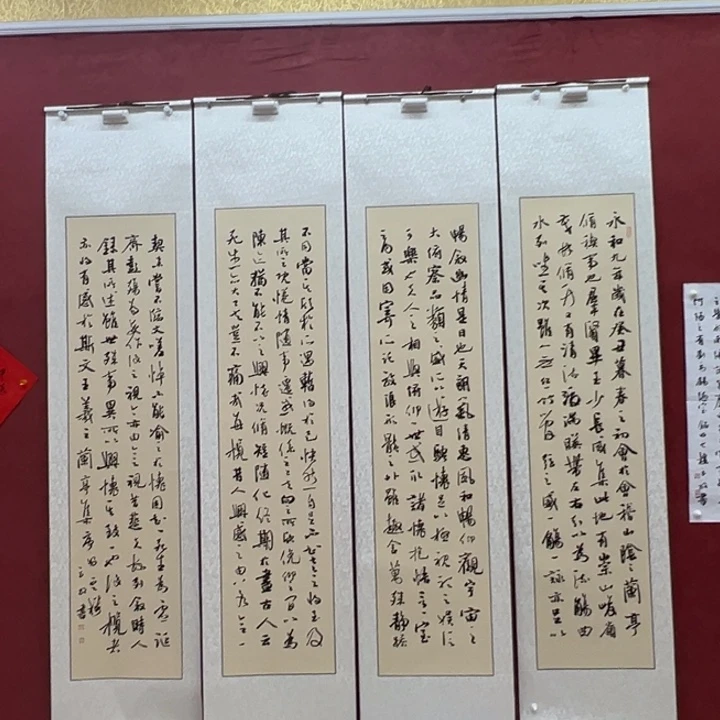 永和九年歲在癸丑暮春之初會於會稽山陰之蘭亭
脩禊事也羣賢畢至少長咸集此地有崇山峻嶺
茂林脩竹又有清流激湍暎帶左右引以為流觴曲
水列坐其次雖無絲竹管弦之盛一觴一詠亦足以
暢敘幽情是日也天朗氣清惠風和暢仰觀宇宙之
大俯察品類之盛所以遊目騁懷足以極視聽之娛信
可樂也夫人之相與俯仰一世或取諸懷抱悟言一室
之內或因寄所託放浪形骸之外雖趣舍萬殊靜躁
不同當其欣於所遇暫得於己快然自足不知老之將至及
其所之既倦情隨事遷感慨係之矣向之所欣俛仰之間以為
陳迹猶不能不以之興懷況脩短隨化終期於盡古人云
死生亦大矣豈不痛哉每攬昔人興感之由若合一
契未嘗不臨文嗟悼不能喻之於懷固知一死生為虛誕
齊彭殤為妄作後之視今亦由今之視昔悲夫故列敘時人
錄其所述雖世殊事異所以興懷其致一也後之攬者
亦將有感於斯文王羲之蘭亭集序